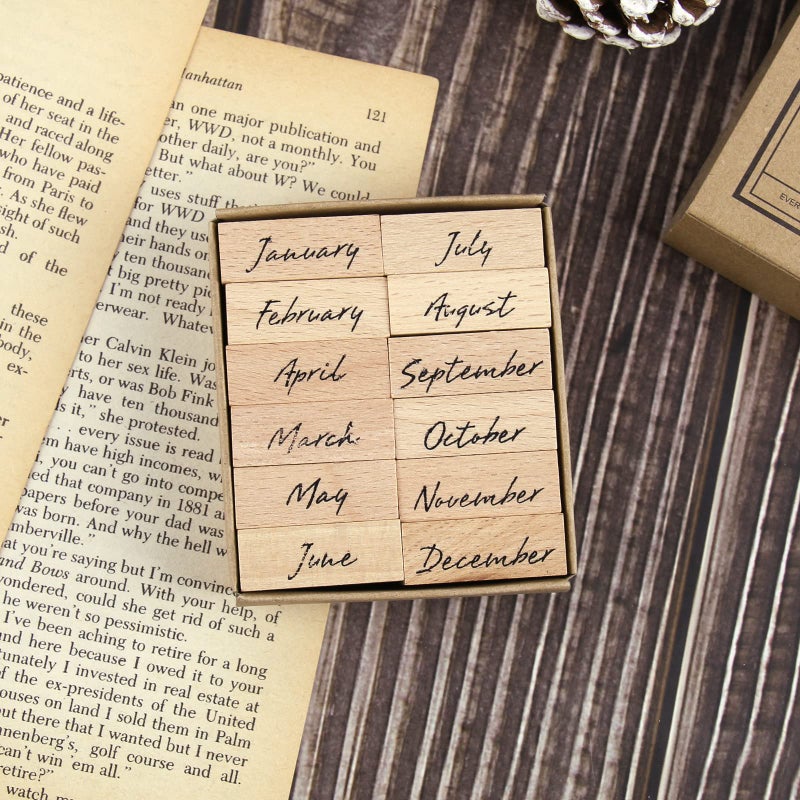 patience and a life-
of her seat in the
and raced along
Her fellow pas-
who have paid
from Paris to
. As she flew
sight of such
sh.
d of the
these
in the
body,
ex-
Manhattan
121
an one major publication and
er, WWD, not a monthly. You
other daily, are you?"
But what about W? We could
etter."
uses stuff
for WWD
and they us
heir hands on
ten thousand
big pretty pic
I'm not ready
erwear. Whatev
er Calvin Klein jo
to her sex life. Was
rts, or was Bob Fink
have ten thousand
ls it," she protested.
. . every issue is read
em have high incomes, wh
, you can't go into compe
ed that company in 1881 a
papers before your dad was
was born. And why the hell w
mberville."
at you're saying but I'm convinc
and Bows around. With your help, of
wondered, could she get rid of such a
he weren't so pessimistic.
I've been aching to retire for a long
and here because I owed it to your
tunately I invested in real estate at
of the ex-presidents of the United
ouses on land I sold them in Palm
out there that I wanted but I never
nnenberg's, golf course and all.
can't win 'em all."
retire?"
watch
January
February
April
March
May
June
July
August
September
October
November
December
EVER